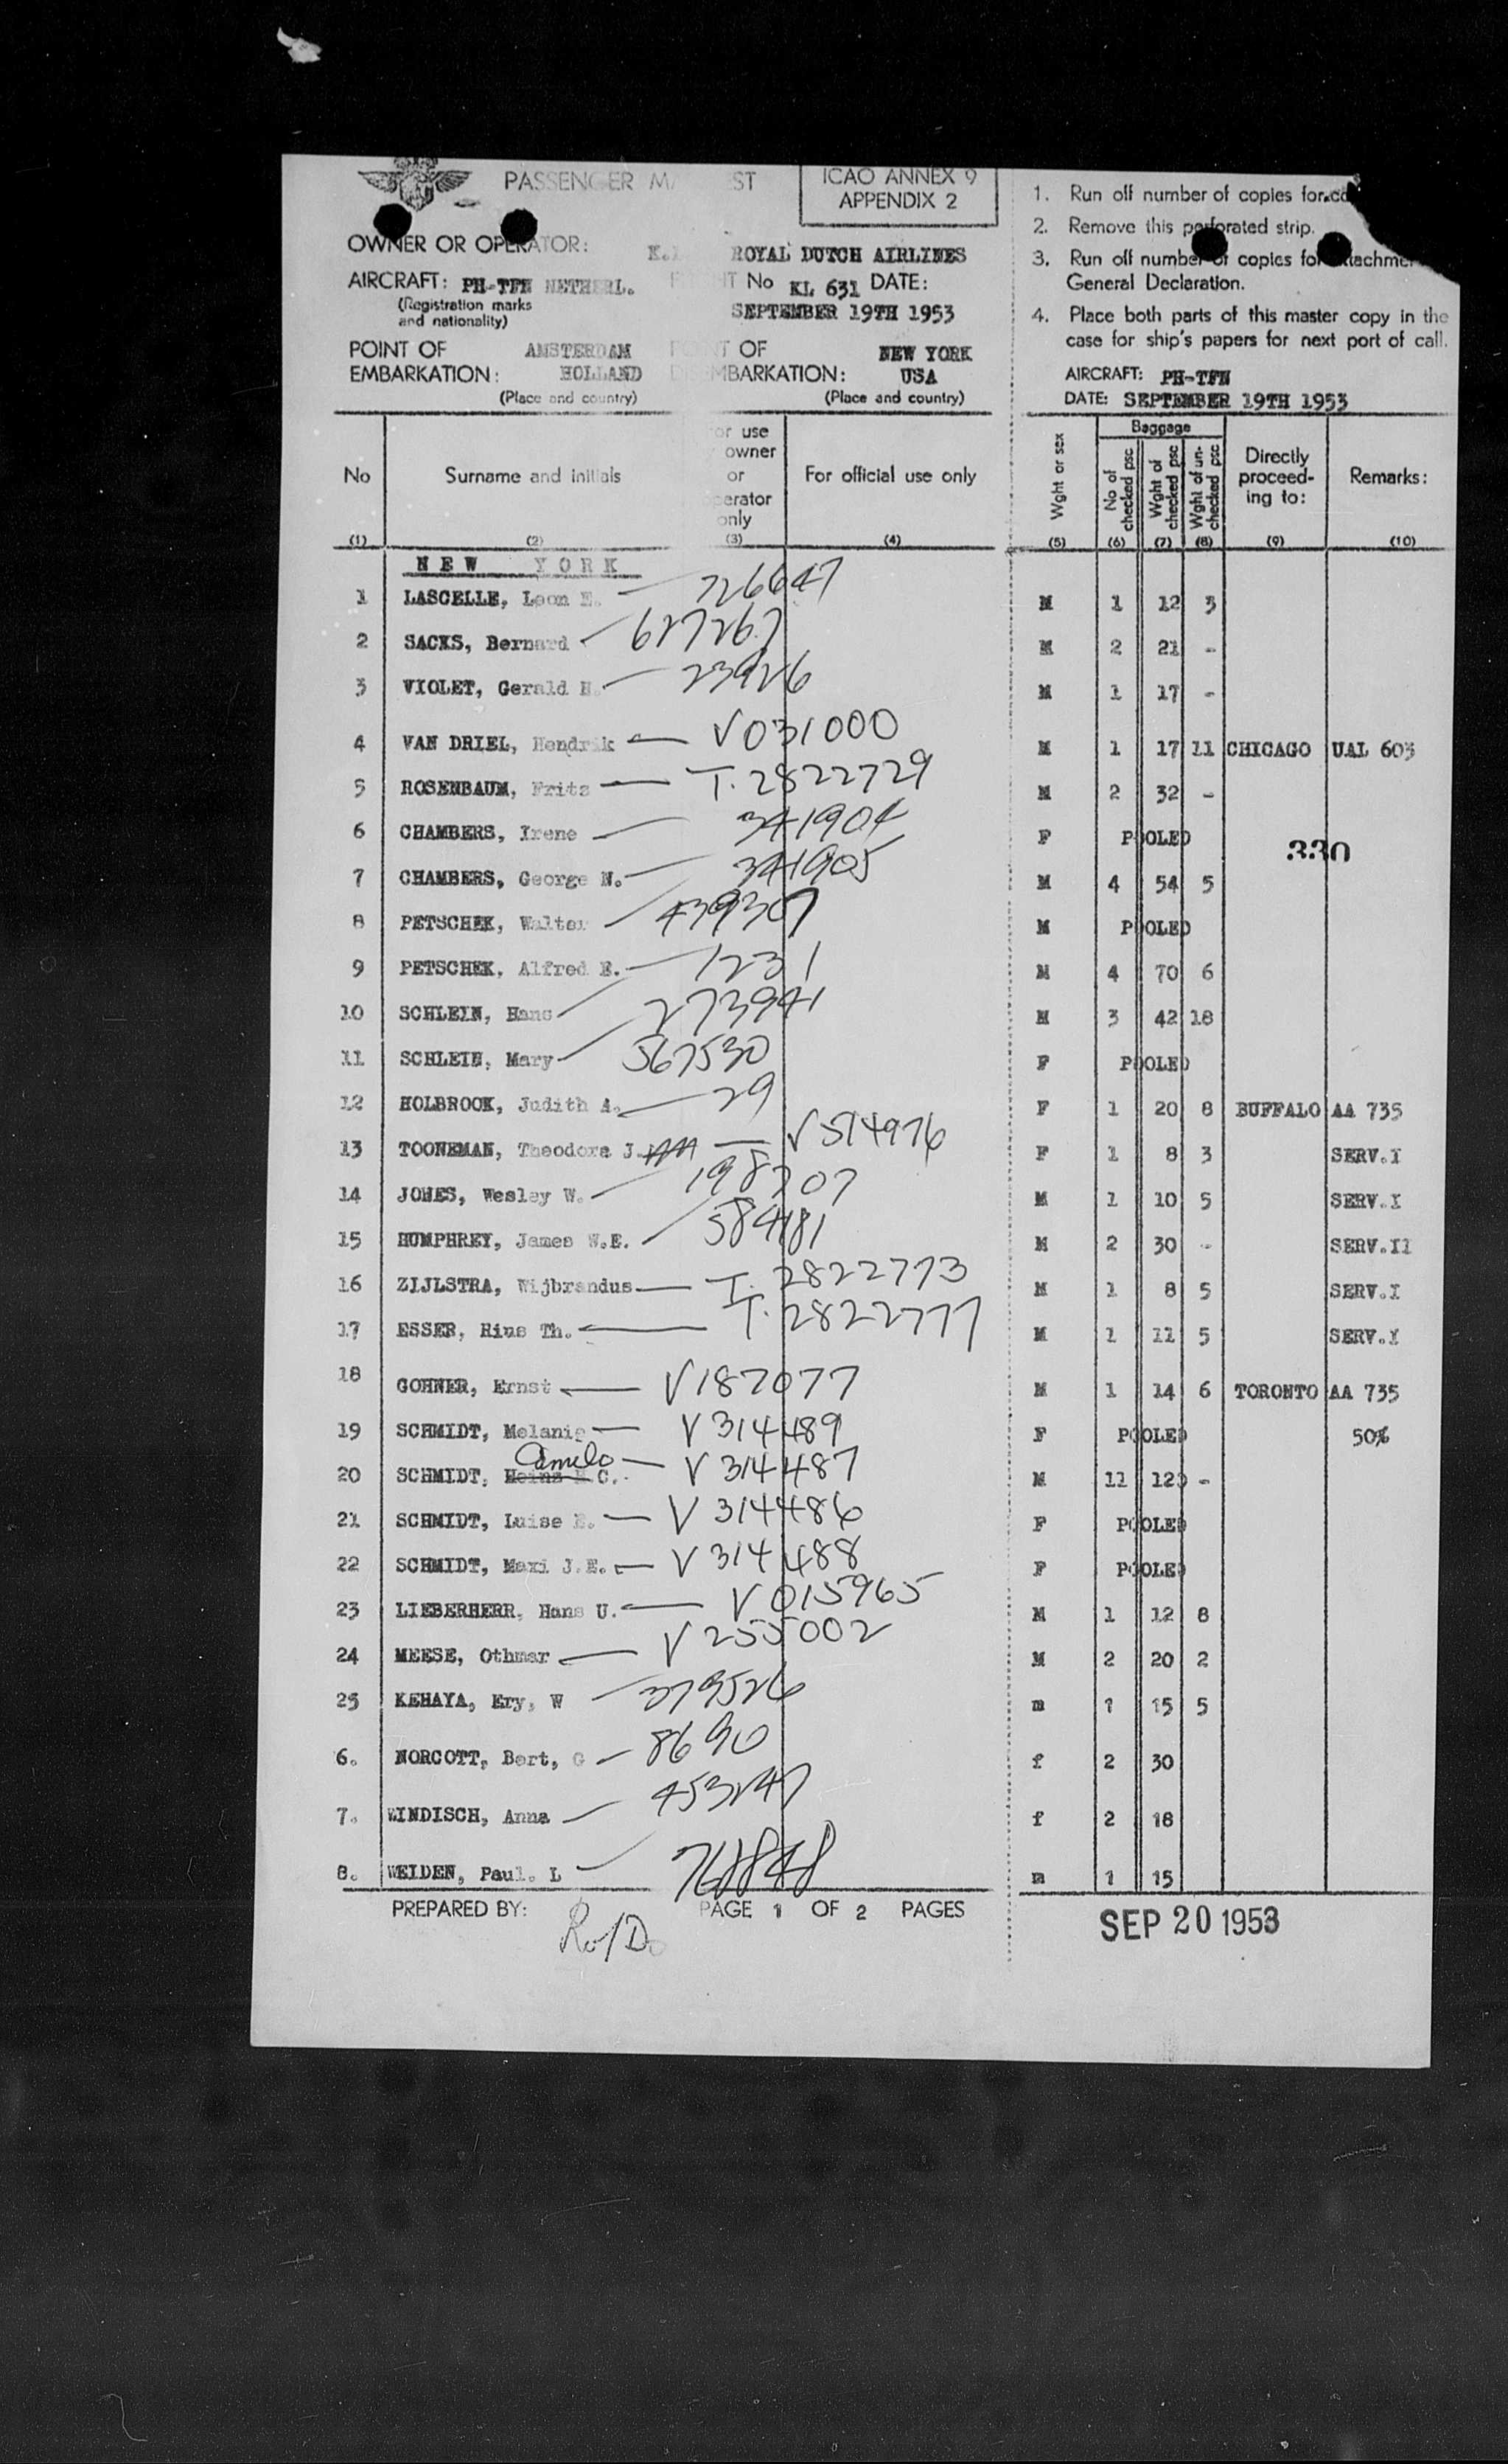 PASSENGER MA ST
ICAO ANNEX 9
APPENDIX 2
OWNER OR OPERATOR: K. ROYAL DUTCH AIRLINES
AIRCRAFT: PH-TFN NETHERL. T No KL 631 DATE:
(Registration marks
and nationality)
SEPTEMBER 19TH 1953
POINT OF AMSTERDAM OF NEW YORK
EMBARKATION: HOLLAND D MBARKATION: USA
(Place and country) (Place and country)
1. Run off number of copies for
2. Remove this perforated strip.
3. Run off number of copies for
General Declaration.
4. Place both parts of this master copy in the
case for ship's papers for next port of call.
AIRCRAFT: PH-TFN
DATE: SEPTEMBER 19TH 1953
No
Surname and initials
or use
owner
or
perator
only
For official use only
Wght or sex
Baggage
No of checked psc
Wght of checked psc
Wght of un-checked psc
Directly
proceed-
ing to:
Remarks:
(1) (2) (3) (4) (5) (6) (7) (8) (9) (10)
NEW YORK
1 LASCELLE, Leon E. — 726647 M 1 12 3
2 SACKS, Bernard 627267 M 2 21 -
3 VIOLET, Gerald H. — 23926 M 1 17 -
4 VAN DRIEL, Hendrik — V031000 M 1 17 11 CHICAGO UAL 603
5 ROSENBAUM, Frits — T. 2822729 M 2 32 -
6 CHAMBERS, Irene — 341904 F POOLED
330
7 CHAMBERS, George N. — 341905 M 4 54 5
8 PETSCHEK, Walter 439307 M POOLED
9 PETSCHEK, Alfred E. — 1231 M 4 70 6
10 SCHLEIN, Hans 273941 M 3 42 18
11 SCHLEIN, Mary 567530 F POOLED
12 HOLBROOK, Judith A. — 29 F 1 20 8 BUFFALO AA 735
13 TOONEMAN, Theodora J. — V514976 F 1 8 3 SERV.I
14 JONES, Wesley W. — 198707 M 1 10 5 SERV.I
15 HUMPHREY, James W.E. 584181 M 2 30 - SERV.II
16 ZIJLSTRA, Wijbrandus — T. 2822773 M 1 8 5 SERV.I
17 ESSER, Rius Th. — T. 2822777 M 1 11 5 SERV.I
18 GOHNER, Ernst — V187077 M 1 14 6 TORONTO AA 735
19 SCHMIDT, Melanie — V 314489 F POOLED 50%
Camilo
20 SCHMIDT, Heinz C. — V 314487 M 11 120 -
21 SCHMIDT, Luise E. — V 314486 F POOLED
22 SCHMIDT, Maxi J.E. — V 314488 F POOLED
23 LIEBERHERR, Hans U. — V 015965 M 1 12 8
24 MEESE, Othmar — V 255002 M 2 20 2
25 KEHAYA, Ery, W 379526 m 1 15 5
6. NORCOTT, Bert, G — 8690 f 2 30
7. WINDISCH, Anna — 453247 f 2 18
8. WEIDEN, Paul. L — m 1 15
PREPARED BY: Ro/D. PAGE 1 OF 2 PAGES
SEP 20 1953